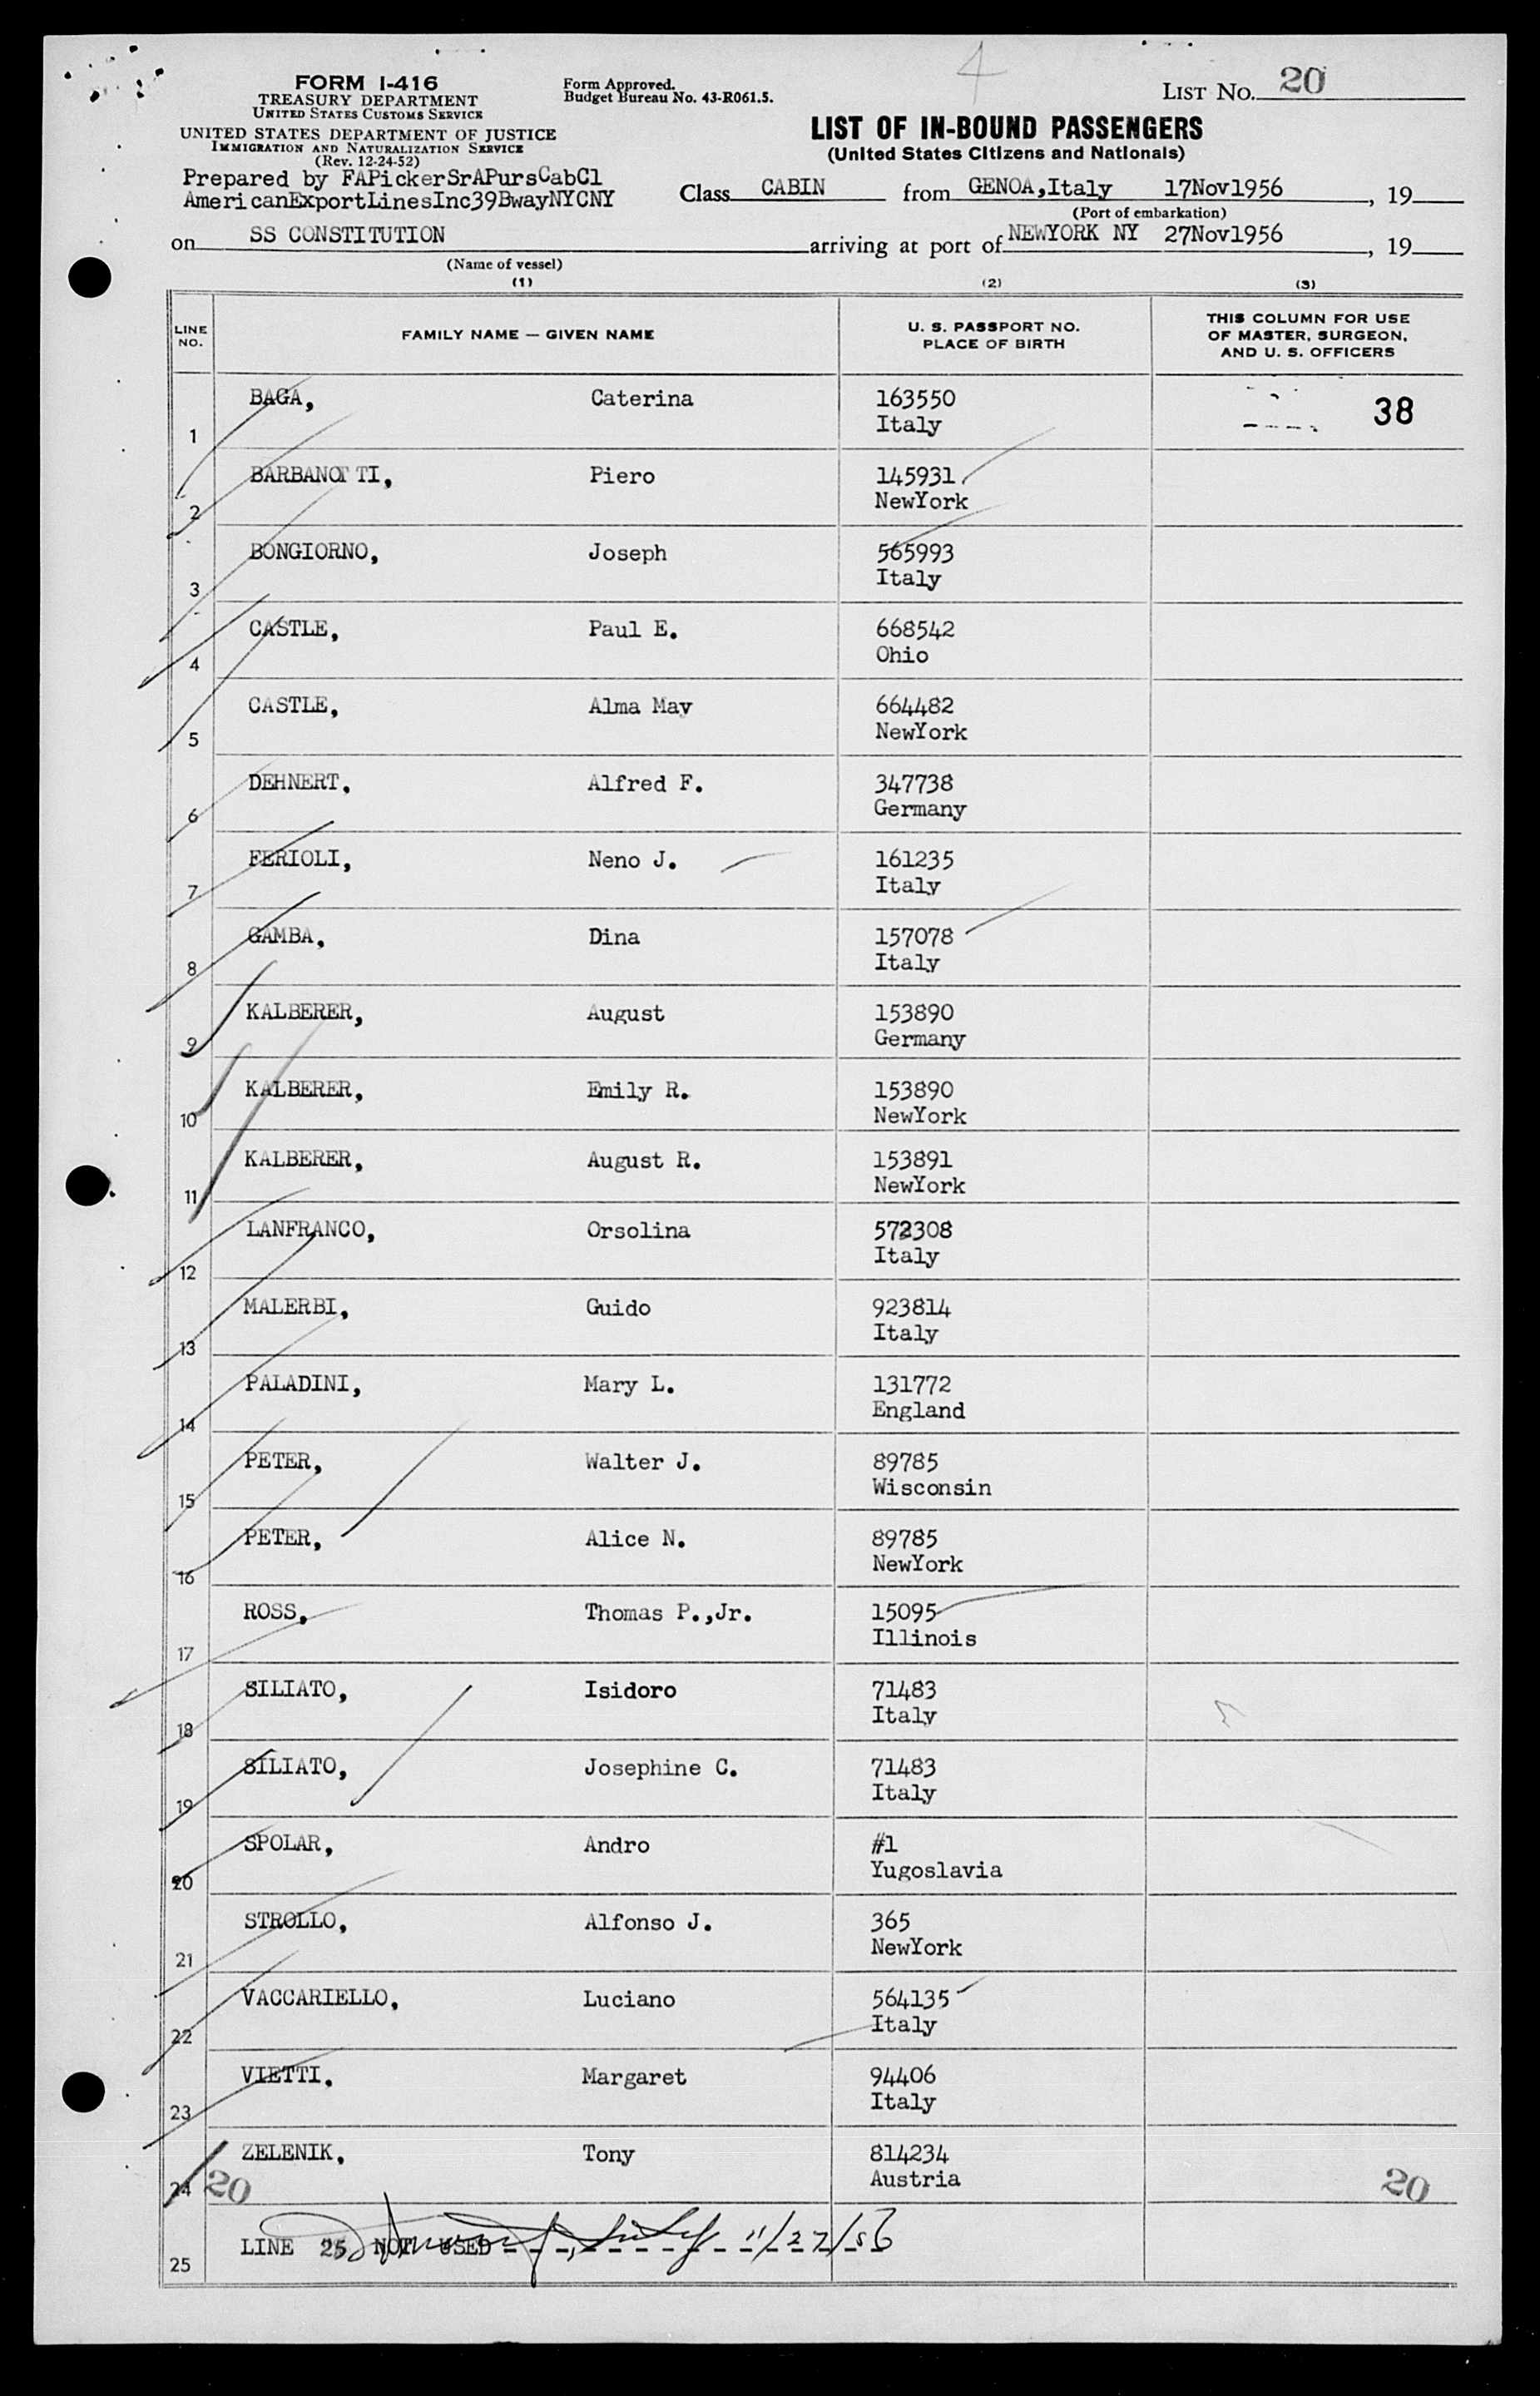 4
FORM I-416
TREASURY DEPARTMENT
UNITED STATES CUSTOMS SERVICE
UNITED STATES DEPARTMENT OF JUSTICE
IMMIGRATION AND NATURALIZATION SERVICE
(Rev. 12-24-52)
Form Approved.
Budget Bureau No. 43-R061.5.
LIST NO. 20
LIST OF IN-BOUND PASSENGERS
(United States Citizens and Nationals)
Prepared by FAPickerSrAPursCabCl
AmericanExportLinesInc39BwayNYCNY
Class CABIN from GENOA,Italy 17Nov1956, 19
(Port of embarkation)
on SS CONSTITUTION arriving at port of NEWYORK NY 27Nov1956, 19
(Name of vessel)
(1) (2) (3)
LINE NO. FAMILY NAME — GIVEN NAME U. S. PASSPORT NO. PLACE OF BIRTH THIS COLUMN FOR USE OF MASTER, SURGEON, AND U. S. OFFICERS
BAGA, Caterina 163550 38
1 Italy
BARBANOTTI, Piero 145931
2 NewYork
BONGIORNO, Joseph 565993
3 Italy
CASTLE, Paul E. 668542
4 Ohio
CASTLE, Alma May 664482
5 NewYork
DEHNERT, Alfred F. 347738
6 Germany
FERIOLI, Neno J. 161235
7 Italy
GAMBA, Dina 157078
8 Italy
KALBERER, August 153890
9 Germany
KALBERER, Emily R. 153890
10 NewYork
KALBERER, August R. 153891
11 NewYork
LANFRANCO, Orsolina 572308
12 Italy
MALERBI, Guido 923814
13 Italy
PALADINI, Mary L. 131772
14 England
PETER, Walter J. 89785
15 Wisconsin
PETER, Alice N. 89785
16 NewYork
ROSS, Thomas P.,Jr. 15095
17 Illinois
SILIATO, Isidoro 71483
18 Italy
SILIATO, Josephine C. 71483
19 Italy
SPOLAR, Andro #1
20 Yugoslavia
STROLLO, Alfonso J. 365
21 NewYork
VACCARIELLO, Luciano 564135
22 Italy
VIETTI. Margaret 94406
23 Italy
ZELENIK. Tony 814234
24 20 Austria 20
LINE 25 NOT USED 11/27/56
25